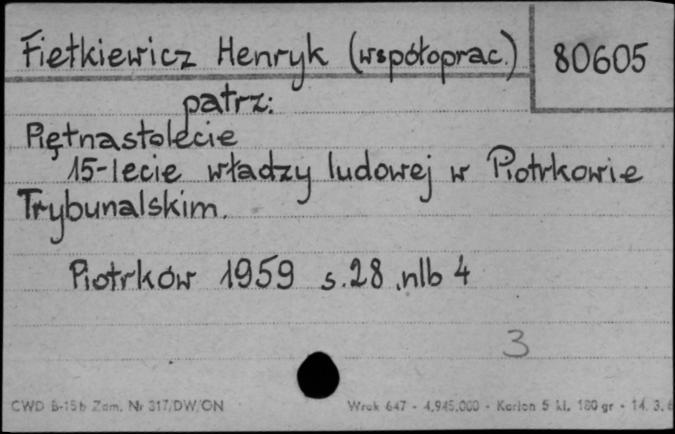 Fiełkiewicz Henryk (współoprac.) 80605
patrz:
Piętnastolecie
15-lecie władzy ludowej w Piotrkowie
Trybunalskim.
Piotrków 1959 s.28 .nlb 4
3
CWD B-15b Zam. Nr 317/DW/ON Wrok 647 - 4.945.000 - Karton 5 kl. 180 gr - 14. 3.